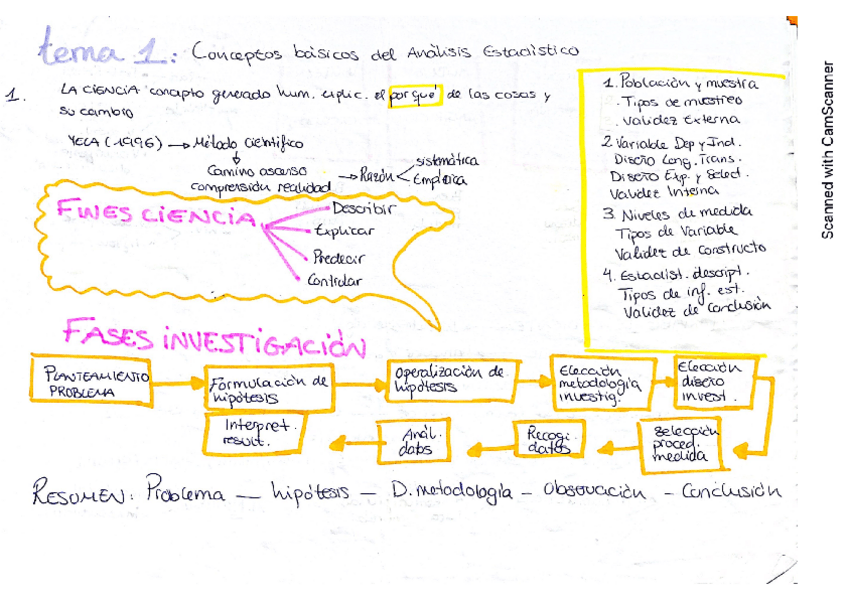 tema 1: Conceptos básicos del Análisis Estadístico
1. LA CIENCIA: concepto generado hum. explic. el por qué de las cosas y
su cambio
YELA (1996) → Método científico
Camino ascenso
comprensión realidad → Razón < sistemática
Empírica
FINES CIENCIA
Describir
Explicar
Predecir
Controlar
1. Población y muestra
. Tipos de muestreo
. Validez Externa
2. Variable Dep y Ind.
Diseño Long. Trans.
Diseño Exp. y Select.
Validez Interna
3. Niveles de medida
Tipos de Variable
Validez de Constructo
4. Estadist. descript.
Tipos de inf. est.
Validez de Conclusión
FASES INVESTIGACIÓN
PLANTEAMIENTO
PROBLEMA
Formulación de
hipótesis
Operalización de
hipótesis
Elección
metodología
investig.
Elección
diseño
invest.
Selección
proced.
medida
Recogi.
datos
Anál.
datos
Interpret.
result.
RESUMEN: Problema — hipótesis — D. metodología — Observación — Conclusión
Scanned with CamScanner